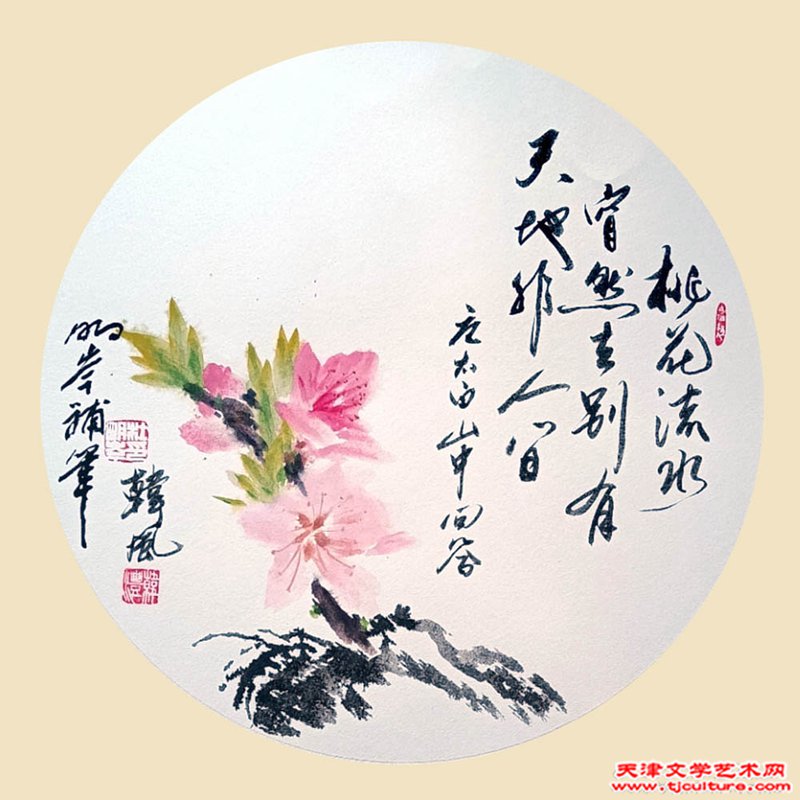 桃花流水
窅然去别有
天地非人间
唐太白山中问答
韓風
明岑補筆
天津文学艺术网
www.tjculture.com